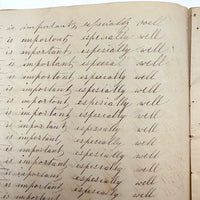 is important, especially well
is important, especially well
is important, especially well
is important, especial well
is important, especially well
is important, especially well
is important, especially well
is important, especially well
is important, especially well
is important, especially well
is important, especially well
is important, especially well
is important, especially well
is important, especially well
is important, especially well